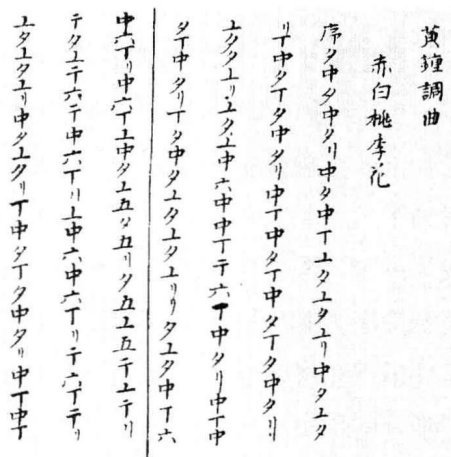 黄鐘調曲
赤白桃李花
序夕中夕中夕リ中夕中丁丄夕丄夕丄リ中夕丄夕
リ丁中夕丁夕中夕リ中丁中夕丁中夕丁夕中夕リ
丄夕夕丄リ丄夕丄中六中中丁テ六丁中夕リ中丁中
夕丁中夕リ丁夕中夕丄夕丄夕丄リリ夕丄夕中丁六
中六丁リ中六丁丄中夕丄五夕五リ夕五丄五テ丄テリ
テ夕丄テ六テ中六丁リ丄中六中六丁リテ六丁テリ
丄夕丄夕丄リ中夕丄夕リ丁中夕丁夕中夕リ中丁中丁